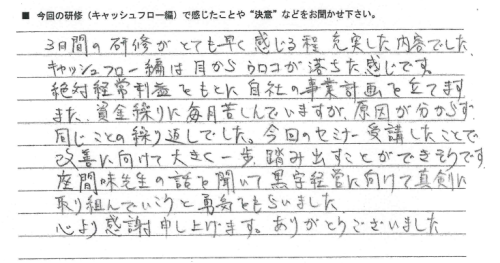 ■ 今回の研修（キャッシュフロー編）で感じたことや“決意”などをお聞かせ下さい。
3日間の研修がとても早く感じる程充実した内容でした。
キャッシュフロー編は目からウロコが落ちた感じです。
絶対経常利益をもとに自社の事業計画を立てます
また、資金繰りに毎月苦しんでいますが、原因が分からず
同じことの繰り返しでした。今回のセミナー受講したことで
改善に向けて大きく一歩、踏み出すことができそうです
座間味先生の話を聞いて黒字経営に向けて真剣に
取り組んでいこうと勇気をもらいました
心より感謝申し上げます。ありがとうございました